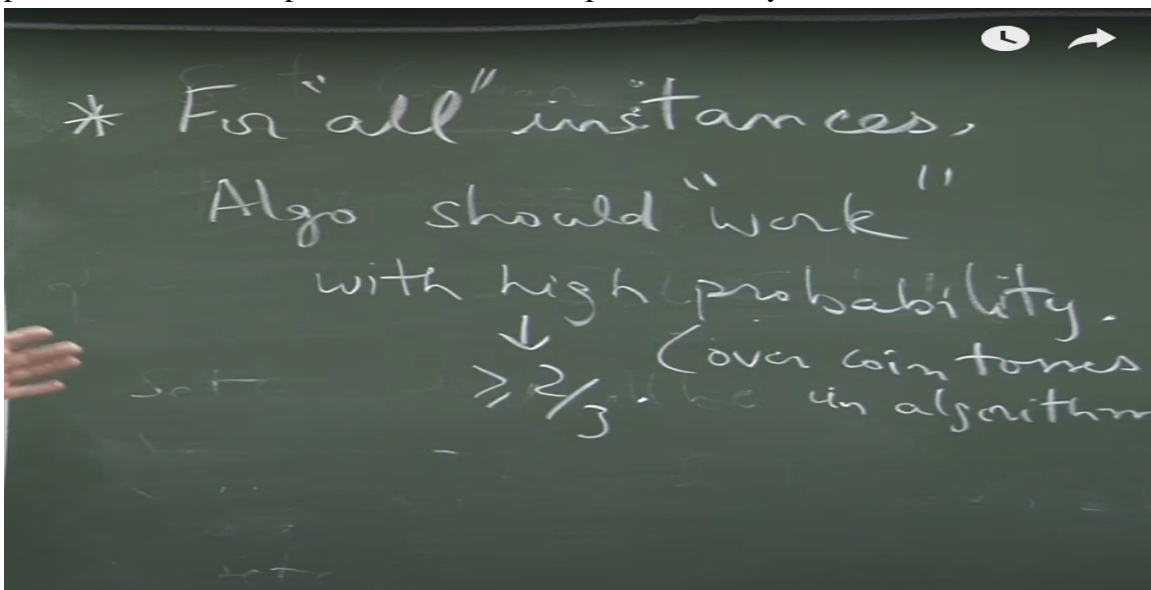 * For "all" instances,
Algo should "work"
with high probability.
↓
≥ 2/3.
(over coin tosses
in algorithm